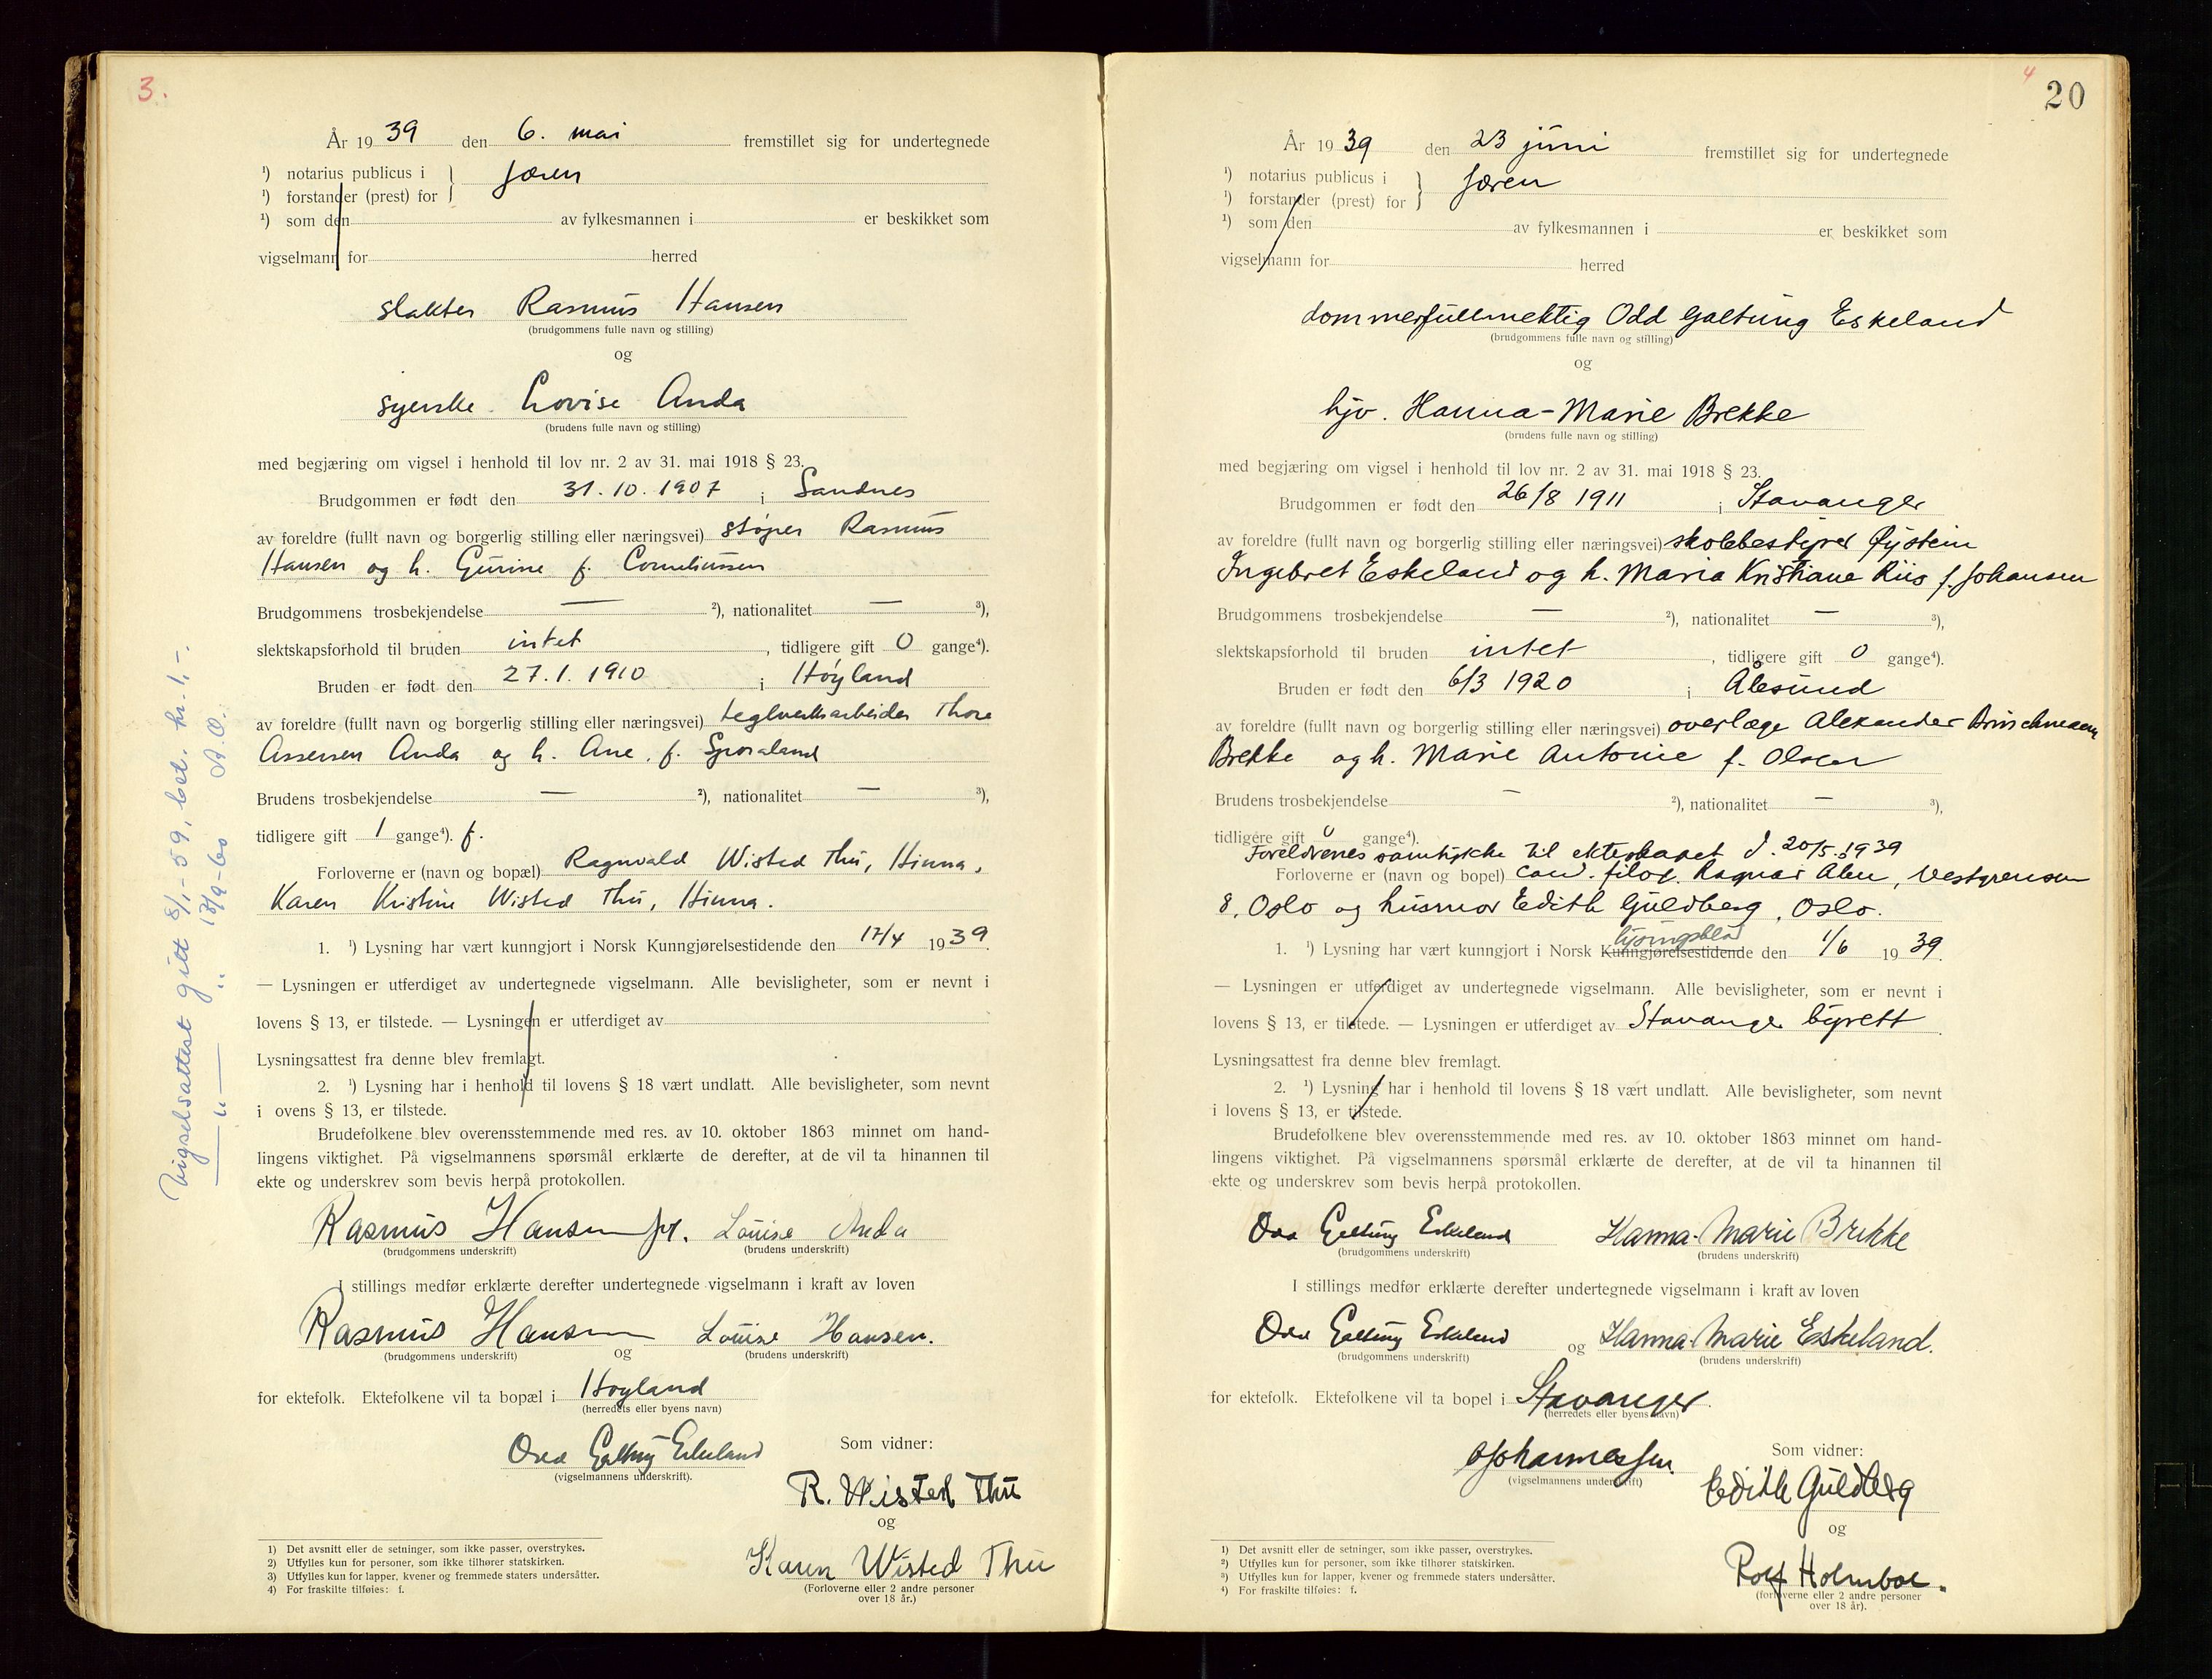 3.
År 19 39 den 6. mai fremstillet sig for undertegnede
¹) notarius publicus i } Jæren
¹) forstander (prest) for
¹) som den av fylkesmannen i er beskikket som
vigselmann for herred
slakter Rasmus Hansen
(brudgommens fulle navn og stilling)
og
syerske Lovise Anda
(brudens fulle navn og stilling)
med begjæring om vigsel i henhold til lov nr. 2 av 31. mai 1918 § 23.
Brudgommen er født den 31. 10. 1907 i Sandnes
av foreldre (fullt navn og borgerlig stilling eller næringsvei) støper Rasmus
Hansen og h. Gurine f. Corneliussen
Brudgommens trosbekjendelse — ²), nationalitet — ³),
slektskapsforhold til bruden intet, tidligere gift 0 gange⁴).
Bruden er født den 27. 1. 1910 i Høyland
av foreldre (fullt navn og borgerlig stilling eller næringsvei) teglverksarbeider Thore
Assersen Anda og h. Ane, f.
Brudens trosbekjendelse — ²), nationalitet — ³),
tidligere gift 1 gange⁴). f.
Forloverne er (navn og bopæl) Ragnvald Wisted Thu, Hinna,
Karen Kristine Wisted Thu, Hinna.
1. ¹) Lysning har vært kunngjort i Norsk Kunngjørelsestidende den 17/4 1939.
— Lysningen er utferdiget av undertegnede vigselmann. Alle bevisligheter, som er nevnt i
lovens § 13, er tilstede. — Lysningen er utferdiget av
Lysningsattest fra denne blev fremlagt.
2. ¹) Lysning har i henhold til lovens § 18 vært undlatt. Alle bevisligheter, som nevnt
i ovens § 13, er tilstede.
Brudefolkene blev overensstemmende med res. av 10. oktober 1863 minnet om hand-
lingens viktighet. På vigselmannens spørsmål erklærte de derefter, at de vil ta hinannen til
ekte og underskrev som bevis herpå protokollen.
Rasmus Hansen jr. Louise Anda
(brudgommens underskrift) (brudens underskrift)
I stillings medfør erklærte derefter undertegnede vigselmann i kraft av loven
Rasmus Hansen Louise Hansen.
(brudgommens underskrift) og (brudens underskrift)
for ektefolk. Ektefolkene vil ta bopæl i Høyland
(herredets eller byens navn)
Odd Galtung Eskeland
(vigselmannens underskrift).
Som vidner:
R. Wisted Thu
og
Karen Wisted Thu
(Forloverne eller 2 andre personer
over 18 år.)
1) Det avsnitt eller de setninger, som ikke passer, overstrykes.
2) Utfylles kun for personer, som ikke tilhører statskirken.
3) Utfylles kun for lapper, kvener og fremmede staters undersåtter.
4) For fraskilte tilføies: f.
Vigselsattest gitt 8/1-59, bet. kr. 1,-.
— " — " 13/9-60
4
20
År 19 39 den 23 juni fremstillet sig for undertegnede
¹) notarius publicus i } Jæren
¹) forstander (prest) for
¹) som den av fylkesmannen i er beskikket som
vigselmann for herred
dommerfullmektig Odd Galtung Eskeland
(brudgommens fulle navn og stilling)
og
hjv. Hanna-Marie Brekke
(brudens fulle navn og stilling)
med begjæring om vigsel i henhold til lov nr. 2 av 31. mai 1918 § 23.
Brudgommen er født den 26/8 1911 i Stavanger
av foreldre (fullt navn og borgerlig stilling eller næringsvei) skolebestyrer Øystein
Ingebret Eskeland og h. Maria Kristiane Riis f. Johansen
Brudgommens trosbekjendelse — ²), nationalitet — ³),
slektskapsforhold til bruden intet, tidligere gift 0 gange⁴).
Bruden er født den 6/3 1920 i Ålesund
av foreldre (fullt navn og borgerlig stilling eller næringsvei) overlæge Alexander Brinchmann
Brekke og h. Marie Antonie f. Olsen
Brudens trosbekjendelse — ²), nationalitet — ³),
tidligere gift 0 gange⁴).
Foreldrenes samtykke til ekteskapet d. 20/5. 1939
Forloverne er (navn og bopel) cand. filol. Ragnar Alen, Vestgrensen
8, Oslo og husmor Edith Guldberg, Oslo.
lysingsblad
1. ¹) Lysning har vært kunngjort i Norsk Kunngjørelsestidende den 1/6 19 39.
— Lysningen er utferdiget av undertegnede vigselmann. Alle bevisligheter, som er nevnt i
lovens § 13, er tilstede. — Lysningen er utferdiget av Stavanger byrett.
Lysningsattest fra denne blev fremlagt.
2. ¹) Lysning har i henhold til lovens § 18 vært undlatt. Alle bevisligheter, som nevnt
i lovens § 13, er tilstede.
Brudefolkene blev overensstemmende med res. av 10. oktober 1863 minnet om hand-
lingens viktighet. På vigselmannens spørsmål erklærte de derefter, at de vil ta hinannen til
ekte og underskrev som bevis herpå protokollen.
Odd Galtung Eskeland Hanna-Marie Brekke
(brudgommens underskrift) (brudens underskrift)
I stillings medfør erklærte derefter undertegnede vigselmann i kraft av loven
Odd Galtung Eskeland og Hanna-Marie Eskeland.
(brudgommens underskrift) (brudens underskrift)
for ektefolk. Ektefolkene vil ta bopel i Stavanger.
(herredets eller byens navn)
Johannessen.
(vigselmannens underskrift)
Som vidner:
Edith Guldberg
og
Rolf Holmboe.
(forloverne eller 2 andre personer
over 18 år).
¹) Det avsnitt eller de setninger, som ikke passer, overstrykes.
²) Utfylles kun for personer, som ikke tilhører statskirken.
³) Utfylles kun for lapper, kvener og fremmede staters undersåtter.
⁴) For fraskilte tilføies: f.